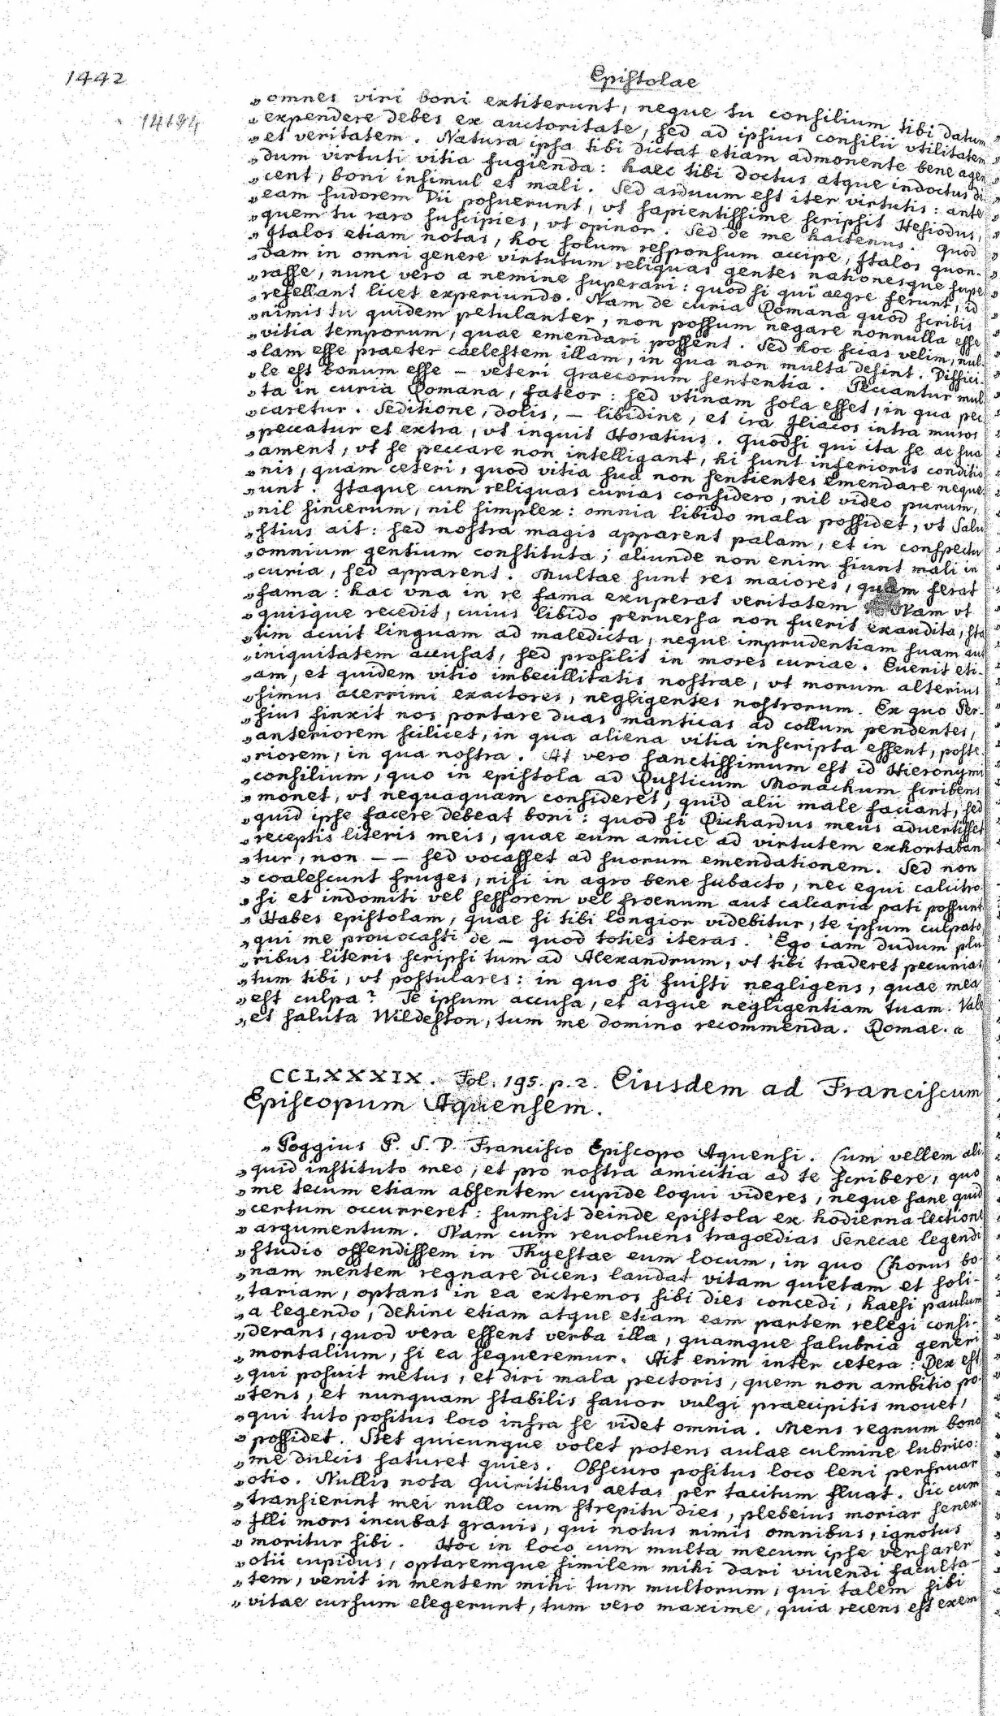 1442
Epistolae
14194
„omnes viri boni extiterunt, neque tu consilium tibi datum
„expendere debes ex auctoritate, sed ad ipsius consilii vtilitatem
„et veritatem. Natura ipsa tibi dictat etiam admonente bene agen
„dum virtuti vitia fugienda: haec tibi doctus atque indoctus di
„cent, boni insimul et mali. Sed arduum est iter virtutis: ante
„eam sudorem Dii posuerunt, vt sapientissime scripsit Hesiodus,
„quem tu raro suscipies, vt opinor. Sed de me hactenus. Quod
„Italos etiam notas, hoc solum responsum accipe, Italos quon-
„dam in omni genere virtutum reliquas gentes nationesque supe
„rasse, nunc vero a nemine superari: quod si qui aegre ferunt, id
„refellant licet experiundo. Nam de curia Romana quod scribis
„nimis tu quidem petulanter, non possum negare nonnulla esse
„vitia temporum, quae emendari possent. Sed hoc scias velim, nul
„lam esse praeter caelestem illam, in qua non multa desint. Diffici-
„le est bonum esse – veteri Graecorum sententia. Peccantur mul
„ta in curia Romana, fateor: sed vtinam sola esset, in qua pec
„caretur. Seditione, dolis, – libidine, et ira Iliacos intra muros
„peccatur et extra, vt inquit Horatius. Quodsi qui ita se ac sua
„ament, vt se peccare non intelligant, hi sunt inferioris conditio
„nis, quam ceteri, quod vitia sua non sentientes emendare neque
„unt. Itaque cum reliquas curias considero, nil video purum,
„nil sincerum, nil simplex: omnia libido mala possidet, vt Salu
„stius ait: sed nostra magis apparent palam, et in conspectu
„omnium gentium constituta; aliunde non enim fiunt mali in
„curia, sed apparent. Multae sunt res maiores, quam ferat
„fama: hac vna in re fama exuperat veritatem. Nam vt
„quisque recedit, cuius libido peruersa non fuerit exaudita, sta
„tim acuit linguam ad maledicta, neque imprudentiam suam aut
„iniquitatem accusat, sed prosilit in mores curiae. Euenit eti-
„am, et quidem vitio imbecillitatis nostrae, vt morum alterius
„simus acerrimi exactores, negligentes nostrorum. Ex quo Per-
„sius finxit nos portare duas manticas ad collum pendentes,
„anteriorem scilicet, in qua aliena vitia inscripta essent, poste-
„riorem, in qua nostra. At vero sanctissimum est id Hieronymi
„consilium, quo in epistola ad Rusticum Monachum scribens
„monet, vt nequaquam consideret, quid alii male faciant, sed
„quid ipse facere debeat boni: quod si Richardus meus aduertisset
„receptis literis meis, quae eum amice ad virtutem exhortaban
„tur, non – – sed vocasset ad suorum emendationem. Sed non
„coalescunt fruges, nisi in agro bene subacto, nec equi calcitro
„si et indomiti vel sessorem vel froenum aut calcaria pati possunt
„Habes epistolam, quae si tibi longior videbitur, te ipsum culpato
„qui me prouocasti de – quod toties iteras. Ego iam dudum plu
„ribus literis scripsi tum ad Alexandrum, vt tibi traderet pecunias
„tum tibi, vt postulares: in quo si fuisti negligens, quae mea
„est culpa? Te ipsum accusa, et argue negligentiam tuam. Vale
„et saluta Wildeston, tum me domino recommenda. Romae. a
CCLXXXIX. Fol. 195. p. 2. Eiusdem ad Franciscum
Episcopum Aquensem.
„Poggius P. S. D. Francisco Episcopo Aquensi. Cum vellem ali
„quid instituto meo, et pro nostra amicitia ad te scribere, quo
„me tecum etiam absentem cupide loqui videres, neque sane quid
„certum occurreret: sumsit deinde epistola ex hodierna lectione
„argumentum. Nam cum reuoluens tragoedias Senecae legendi
„studio offendissem in Thyestae eum locum, in quo Chorus bo-
„nam mentem regnare dicens laudat vitam quietam et soli-
„tariam, optans in ea extremos sibi dies concedi, haesi paulum
„a legendo, dehinc etiam atque etiam eam partem relegi consi-
„derans, quod vera essent verba illa, quamque salubria generi
„mortalium, si ea sequeremur. Ait enim inter cetera: Rex est
„qui posuit metus, et diri mala pectoris, quem non ambitio po-
„tens, et nunquam stabilis fauor vulgi praecipitis mouet,
„qui tuto positus loco infra se videt omnia. Mens regnum bona
„possidet. Stet quicunque volet potens aulae culmine lubrico:
„me dulcis saturet quies. Obscuro positus loco leni perfruar
„otio. Nullis nota Quiritibus aetas per tacitum fluat. Sic cum
„transierint mei nullo cum strepitu dies, plebeius moriar senex.
„Illi mors incubat grauis, qui notus nimis omnibus, ignotus
„moritur sibi. Hoc in loco cum multa mecum ipse versarer
„otii cupidus, optaremque similem mihi dari viuendi faculta-
„tem, venit in mentem mihi tum multorum, qui talem sibi
„vitae cursum elegerunt, tum vero maxime, quia recens est exem